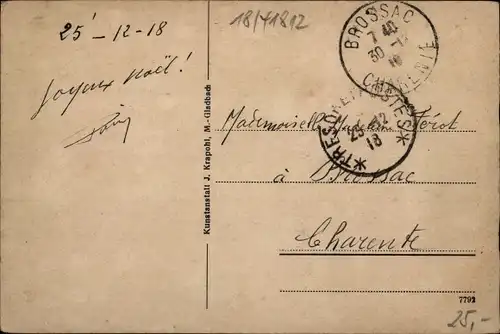 25 - 12 - 18
Joyeux noël!
18/41812
BROSSAC
7 40
30 -12
CHARENTE
TRESOR ET POSTES
25 -12
18
Mademoiselle
à Brossac
Charente
Kunstanstalt J. Krapohl, M.-Gladbach
7792
25,-